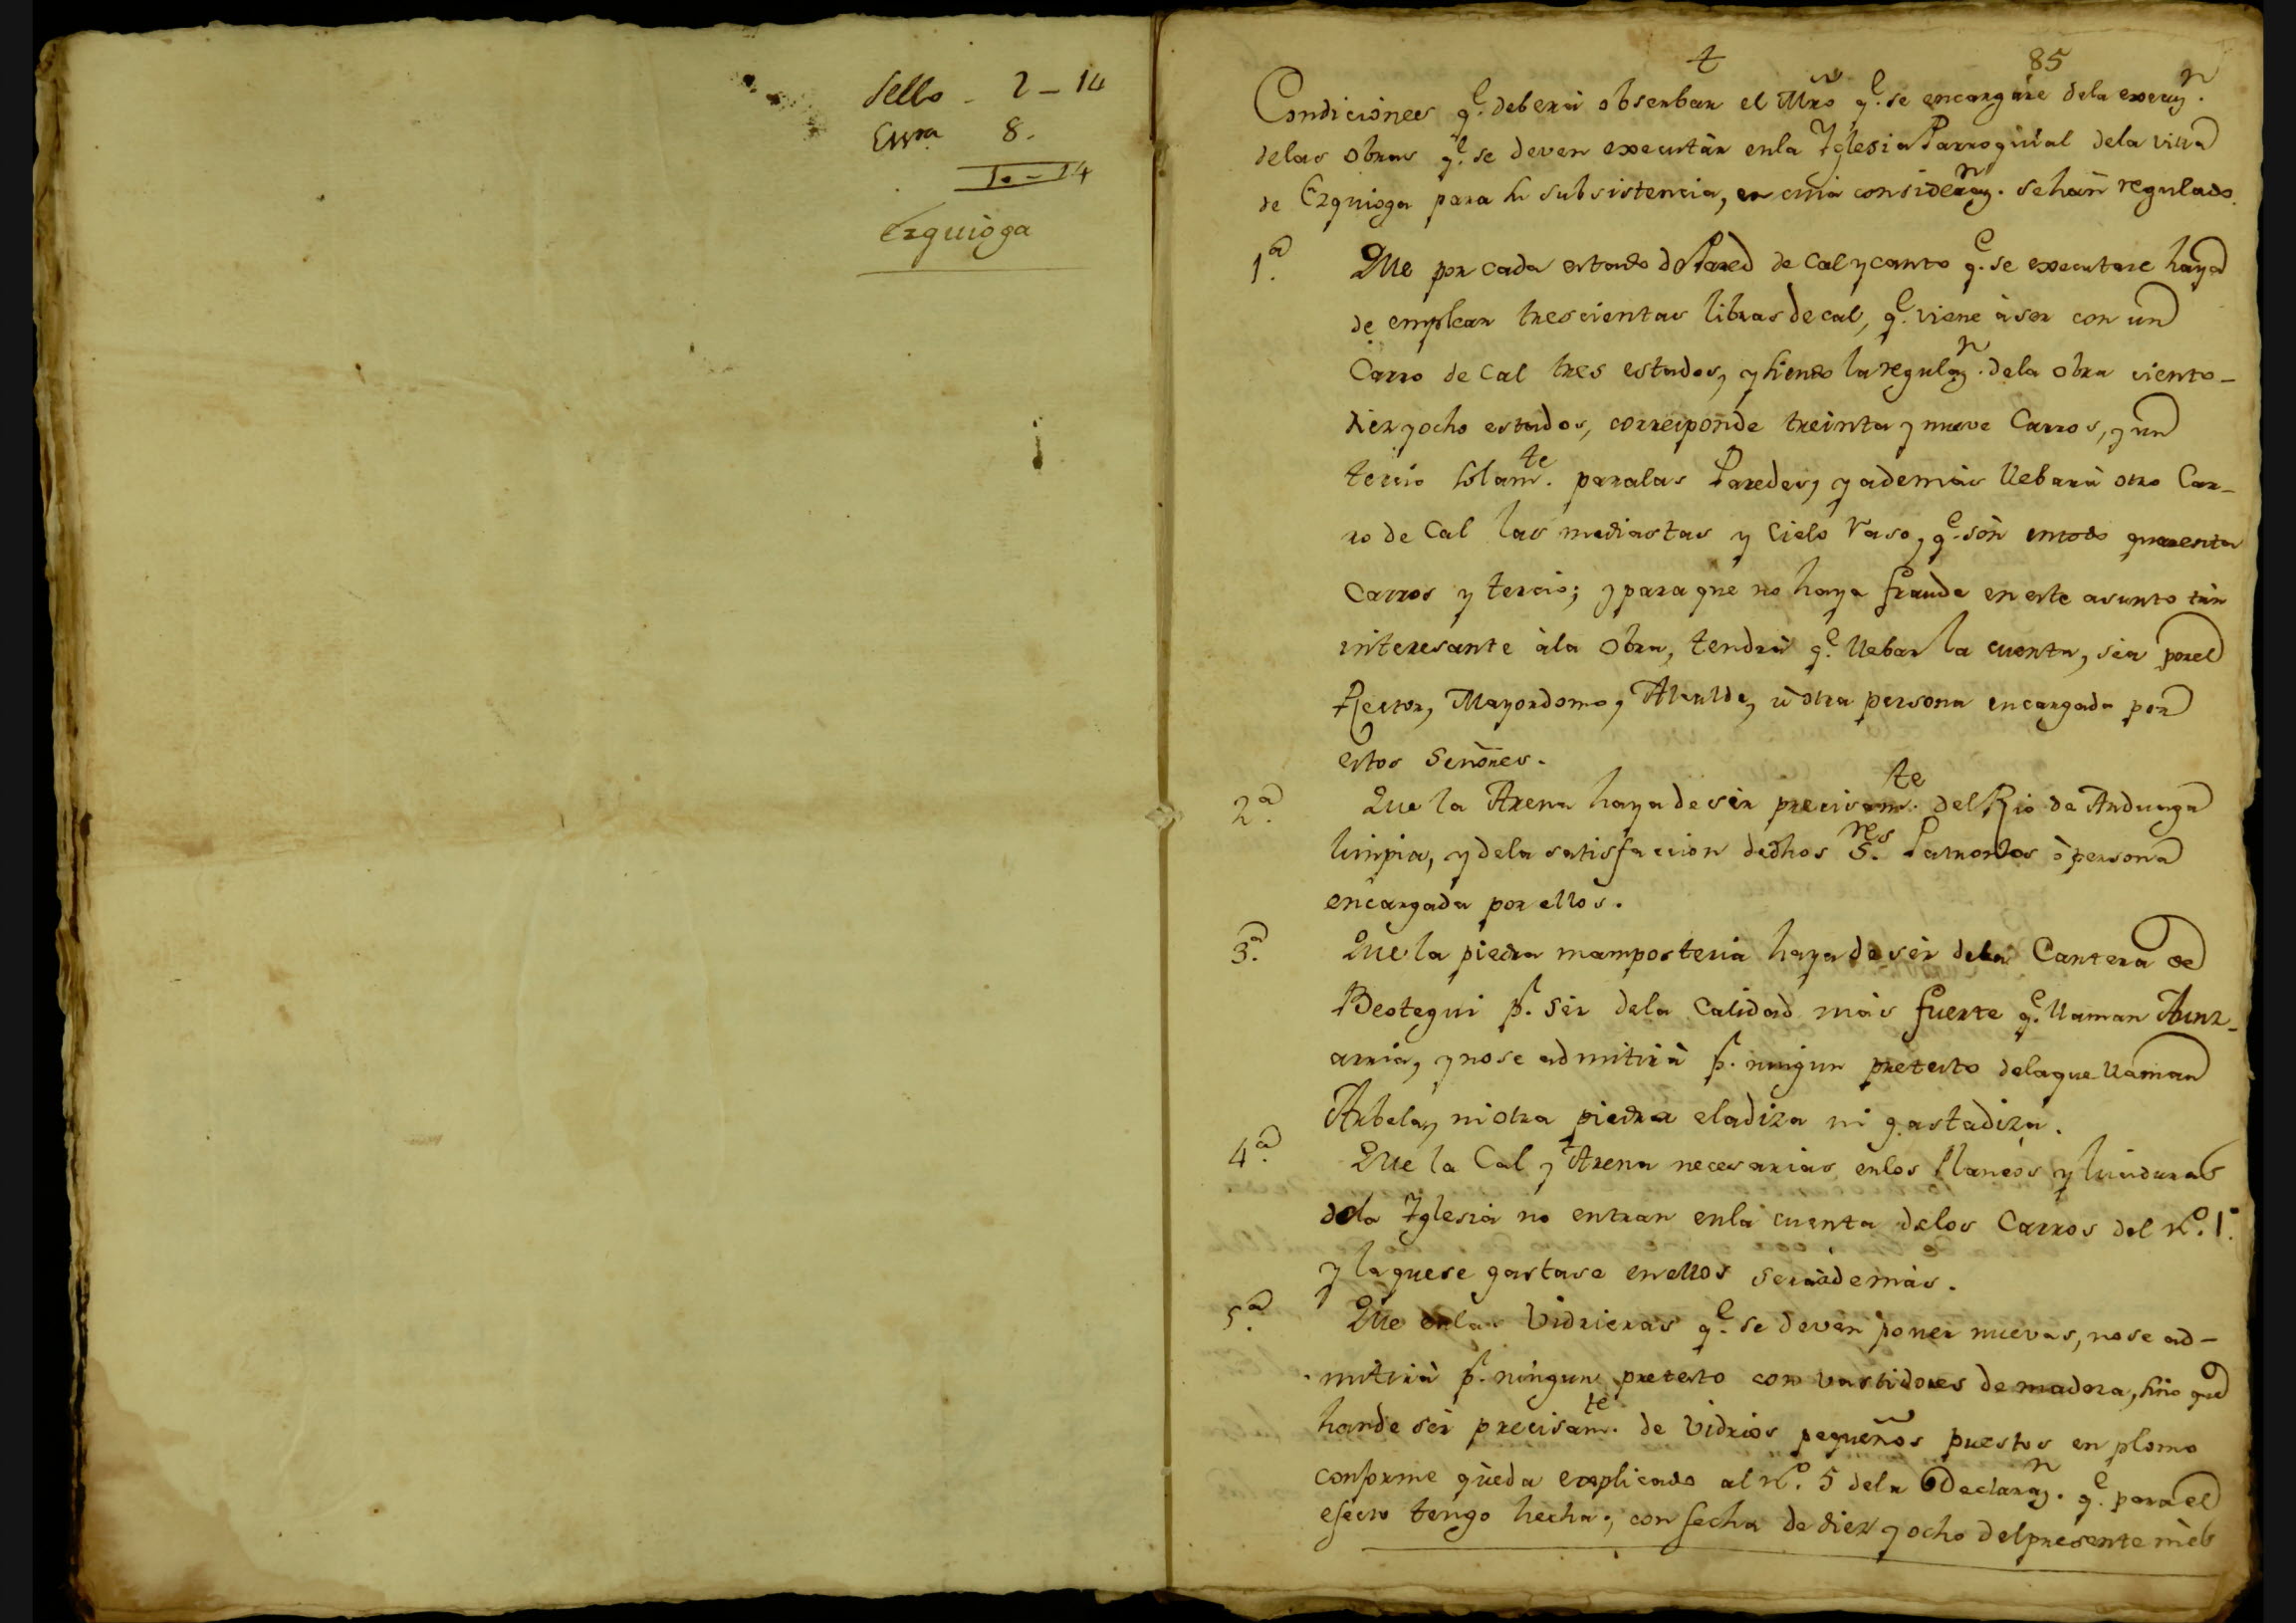 Sello - 2 - 14
Essra 8.
10 - 14
Ezquioga
t 85
Condiciones q.e deberá obserbar el Mro q.e se encargáre dela execuz.n
delas obras q.e se deven executár enla Yglesia Parroquial dela villa
de Ezquioga para su subsistencia, en cuia consideraz.n se hán regulado.
1.a Que por cada estado de Pared de cal y canto q.e se executare haya
de emplear trescientas libras de cal, q.e viene à ser con un
Carro de Cal tres estados, y siendo la regulaz.n dela obra ciento-
diez y ocho estados, corresponde treinta y nueve Carros, y un
tercio solam.te paralas Paredes, y ademàs llebarà otro Car-
ro de Cal las mediastas y Cielo raso, q.e són en todo quarenta
Carros y tercio; y para que no haya fraude en este asunto tán
interesante àla Obra, tendrà q.e llebar la cuenta, sea porel
Rector, Mayordomo, Alcalde, ù otra persona encargada por
estos Señores.
2.a Que la Arena haya de sér precisam.te del Rio de Anduaga
limpia, y dela satisfaccion dedhos S.res Patronos ò persona
encargada por ellos.
3.a Que la piedra mamposteria haya de sér dela Cantera de
Beotegui p.r sér dela Calidad màs fuerte q.e llaman Aunz-
arria, y nose admitirà p.r ningun pretesto delaque llaman
Arbela, ni otra piedra eladiza ni gastadiza.
4.a Que la Cal y Arena necesarias enlos llaneos y luciduras
dela Yglesia no entran enla cuenta delos Carros del n.o 1.o
y laquese gastase enellos serà ademàs.
5.a Que enlas Vidrieras q.e se devén poner nuevas, nose ad-
mitirà p.r ningun pretesto con vastidores de madera, sino que
hande sér precisam.te de vidrios pequeños puestos en plomo
conforme queda explicado al n.o 5 dela Declaraz.n q.e para el
efecto tengo hecha, con fecha de diez y ocho del presente mès